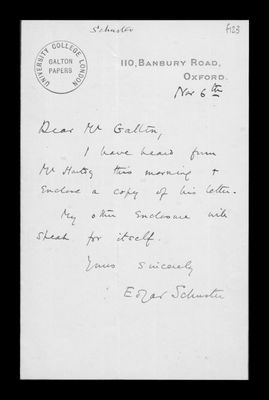 Schuster
f123
UNIVERSITY COLLEGE LONDON
GALTON
PAPERS
110, BANBURY ROAD,
OXFORD.
Nov 6th
Dear Mr Galton,
I have heard from
Mr Hartog this morning &
Enclose a copy of his letter.
My other Enclosure will
speak for itself.
Yours sincerely
Edgar Schuster